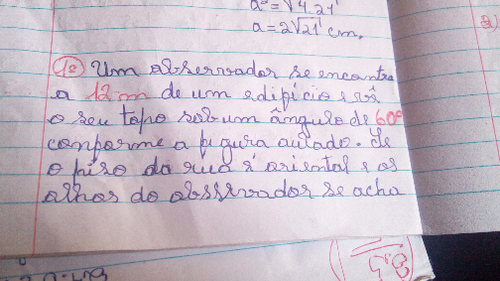 a = √4.21
a = 2√21 cm.
12 Um observador se encontra
a 12 m de um edifício e vê
o seu topo sob um ângulo de 60º
conforme a figura aulado. Se
o piso da rua é oriental e os
olhos do obsservador se acha